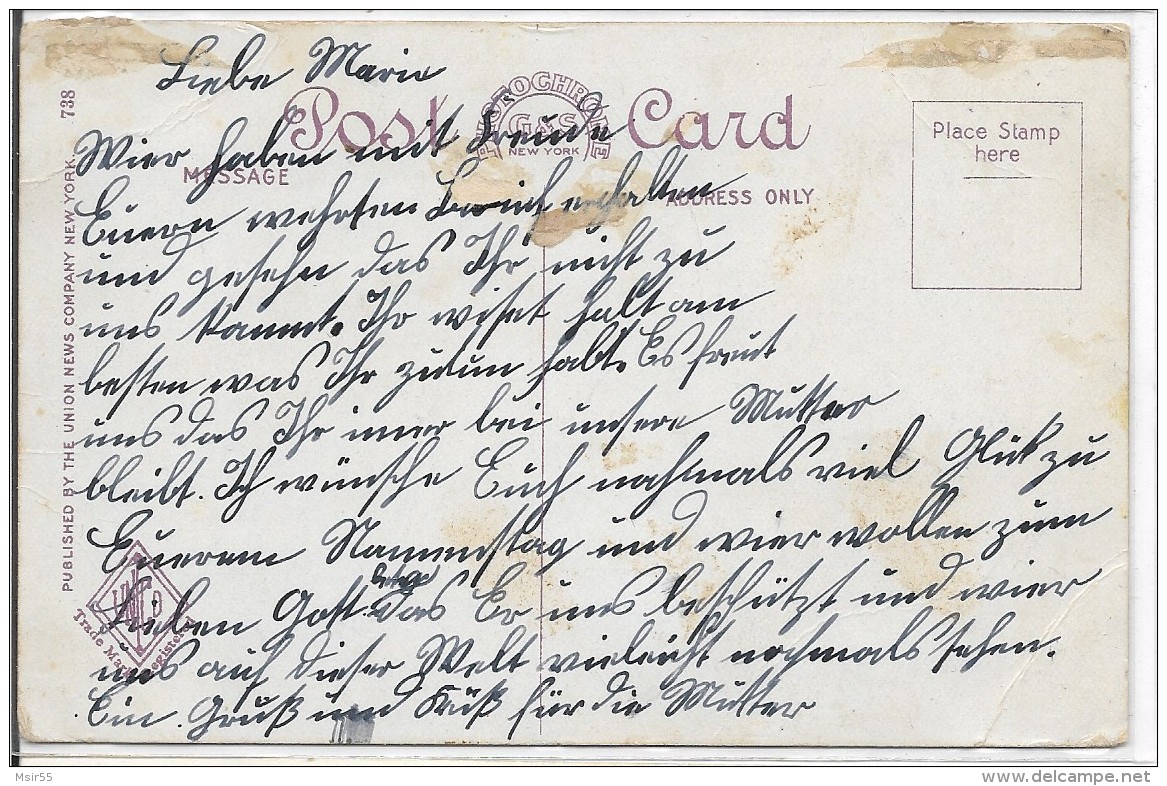 Liebe Marie
PHOTOCHROME
G&S
NEW YORK
Post Card
Place Stamp
here
MESSAGE
ADDRESS ONLY
738
PUBLISHED BY THE UNION NEWS COMPANY NEW YORK.
Trade Mark Registered
Wier haben mit Freude
Euern wehrten Brief erhalten
und gesehn das Ihr nicht zu
uns kammt. Ihr wiset halt am
besten was Ihr zutun habt. Es freut
uns das Ihr imer bei unsere Mutter
bleibt. Ich wünsche Euch nochmals viel Glük zu
Euerem Namenstag und wier wollen zum
Lieben Gott das Er uns beschützt und wier
uns auf dieser Welt vieleicht nochmals sehen.
Ein Gruß und Kuß für die Mutter
Msir55
delcampe.net